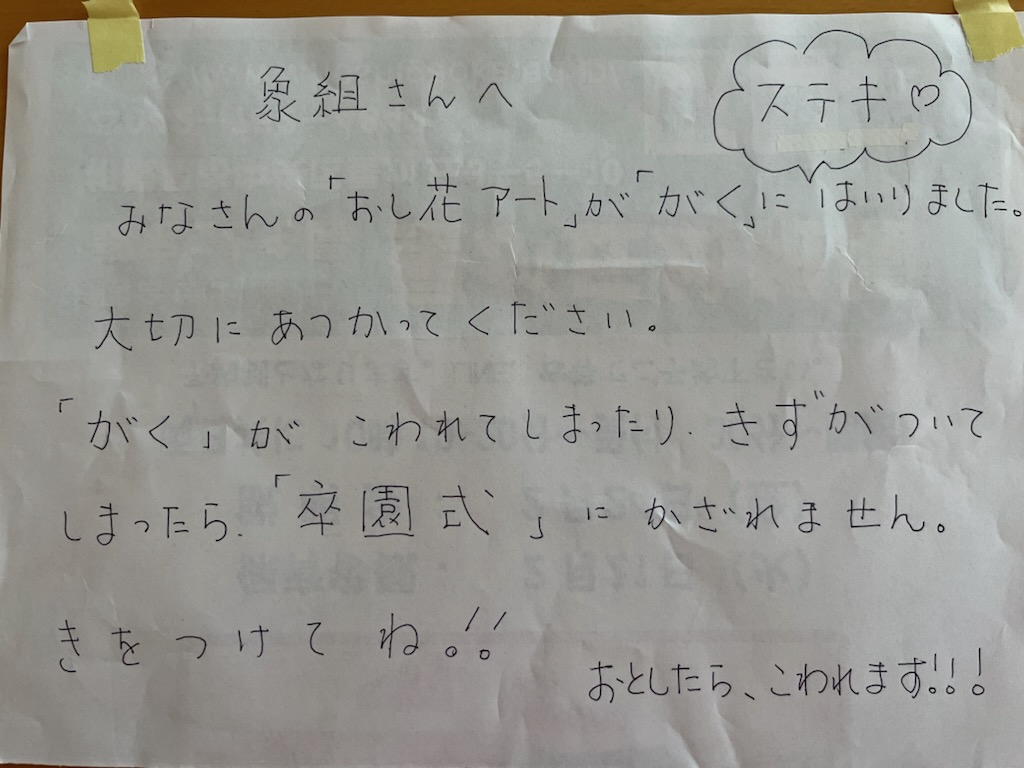 象組さんへ
ステキ♡
みなさんの「おし花アート」が「がく」にはいりました。
大切にあつかってください。
「がく」が こわれてしまったり、きずがついて
しまったら、「卒園式」にかざれません。
きをつけてね!!
おとしたら、こわれます!!!